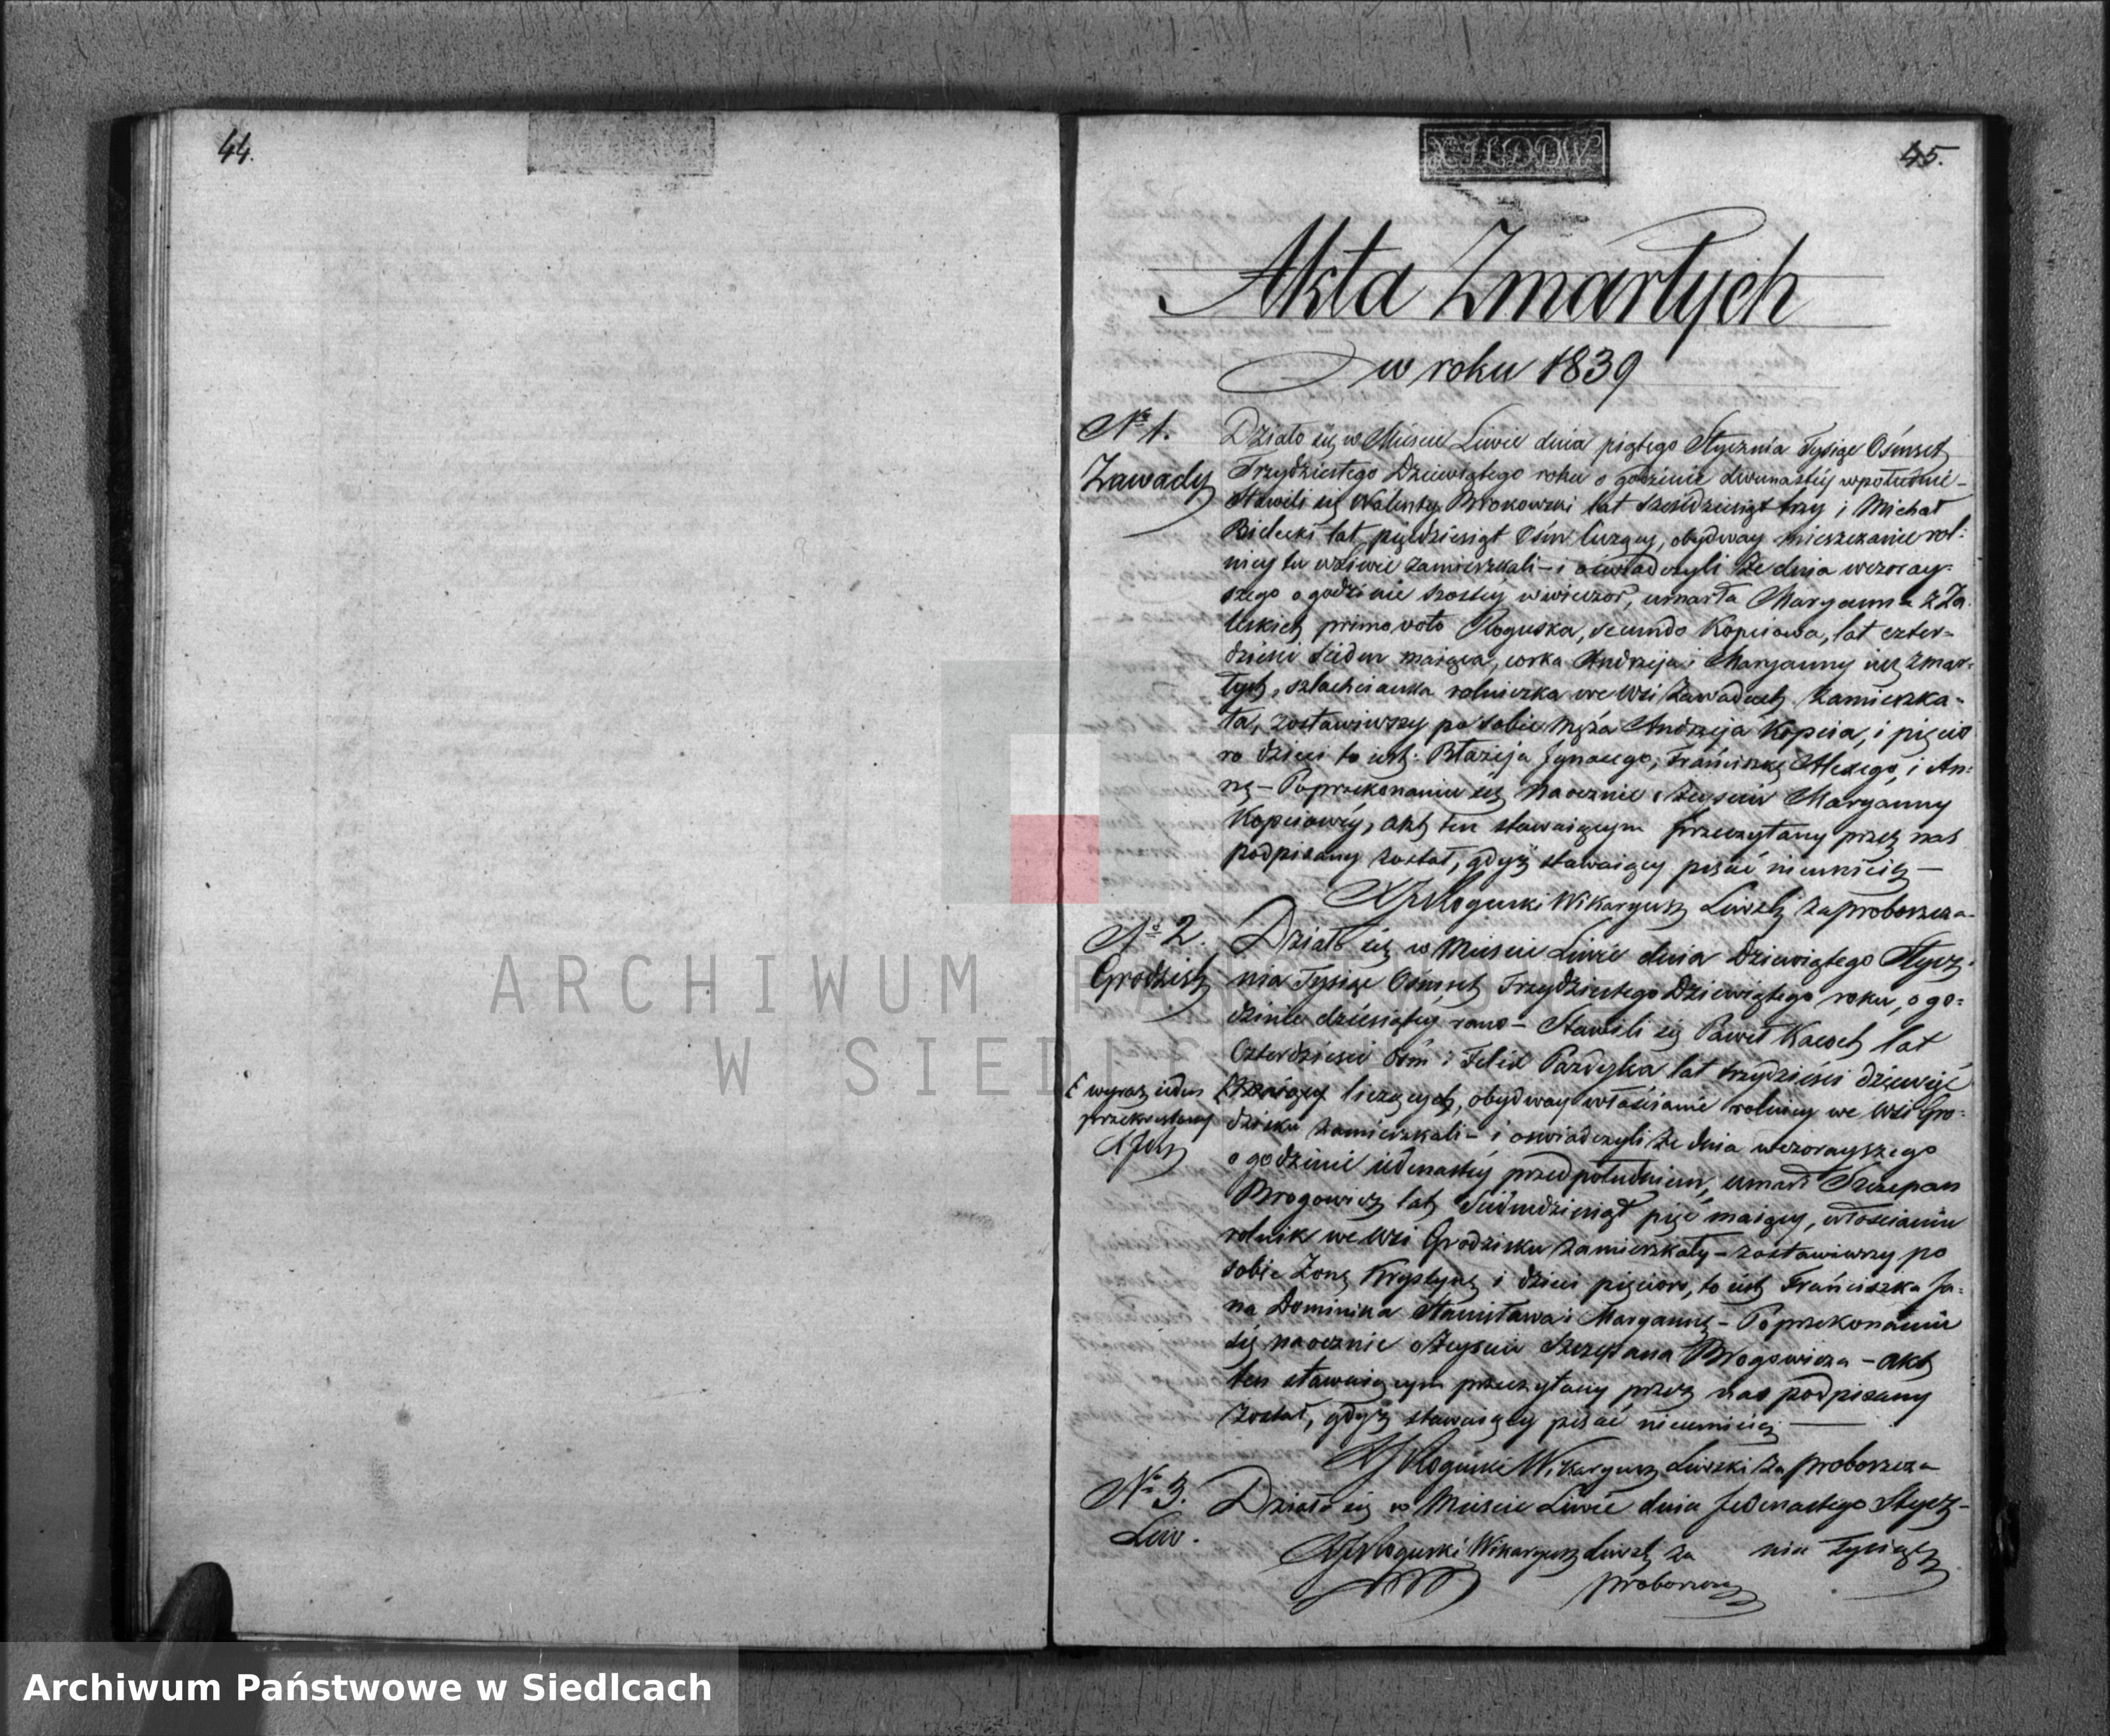 44.
45.
Akta Zmarłych
w roku 1839
№ 1.
Zawady
Działo się w Mieście Liwie dnia piątego Stycznia Tysiąc Ośmset
Trzydziestego Dziewiątego roku o godzinie dwunastéy wpołudnie –
Stawili się Walenty Brokowski lat sześćdziesiąt trzy i Michał
Bielecki lat pięćdziesiąt Ośm liczący, obydway mieszczanie rol:
nicy tu w Liwie zamieszkali – i oświadczyli że dnia wczoray:
szego o godzinie szostéy wwieczor, umarła Maryanna z Za
leskich primo voto Roguska, secundo Kopciowa, lat czter=
dzieści siedm maiąca, corka Andrzeja i Maryanny iuż zmar:
łych, szlachcianka rolniczka we Wsi Zawadach zamieszka=
ła, zostawiwszy po sobie Męża Andrzeja Kopcia, i pięcio
ro dzieci to iest: Błażeja Jgnacego, Franciszkę Alexego, i An:
nę – Poprzekonaniu się naocznie o zeyściu Maryanny
Kopciowéy, akt ten stawaiącym przeczytany przez nas
podpisany został, gdyż stawaiący pisać nieumieią —
X J Roguski Wikaryusz Liwski za proboszcza
№ 2.
Grodzisk
Działo się w Mieście Liwie dnia Dziewiątego Stycz:
nia Tysiąc Ośmset Trzydziestego Dziewiątego roku, o go:
dzinie dziesiątéy rano – Stawili się Paweł Kacech lat
Czterdzieści Ośm i Felix Pazdyka lat trzydzieści dziewięć
wyraz ieden
przekreślony
maiący liczących, obydway włościanie rolnicy we Wsi Gro:
dzisku zamieszkali – i oświadczyli że dnia wczorayszego
o godzinie iedenastéy przedpołudniem, umarł Szczepan
Brogowicz lat Siedmdziesiąt pięć maiący, włościanin
rolnik we Wsi Grodzisku zamieszkały – zostawiwszy po
sobie Żonę Krystynę i dzieci pięcioro, to iest Franciszka Ja:
na Dominika Stanisława i Maryannę – Poprzekonaniu
się naocznie o Zeysciu Szczepana Brogowicza – akt
ten stawaiącym przeczytany przez nas podpisany
został, gdyż stawaiący pisać nieumieią —
X J Roguski Wikaryusz Liwski za proboszcza
№ 3.
Liw.
Działo się w Mieście Liwie dnia Jedenastego Stycz–
nia Tysiąc
X J Roguski Wikaryusz Liwski za
proboszcza
ARCHIWUM PAŃSTWOWE
W SIEDLCACH
Archiwum Państwowe w Siedlcach